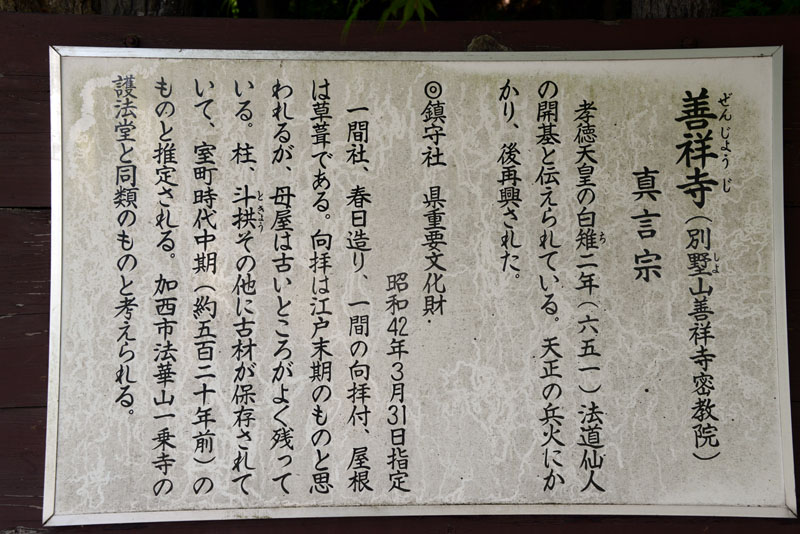 善祥寺（別墅山善祥寺密教院）
ぜんじようじ
しよ
真言宗
孝徳天皇の白雉二年（六五一）法道仙人
ち
の開基と伝えられている。天正の兵火にか
かり、後再興された。
◎鎮守社　県重要文化財・
昭和42年3月31日指定
一間社、春日造り、一間の向拝付、屋根
は草葺である。向拝は江戸末期のものと思
われるが、母屋は古いところがよく残って
いる。柱、斗拱その他に古材が保存されて
ときよう
いて、室町時代中期（約五百二十年前）の
ものと推定される。加西市法華山一乗寺の
護法堂と同類のものと考えられる。